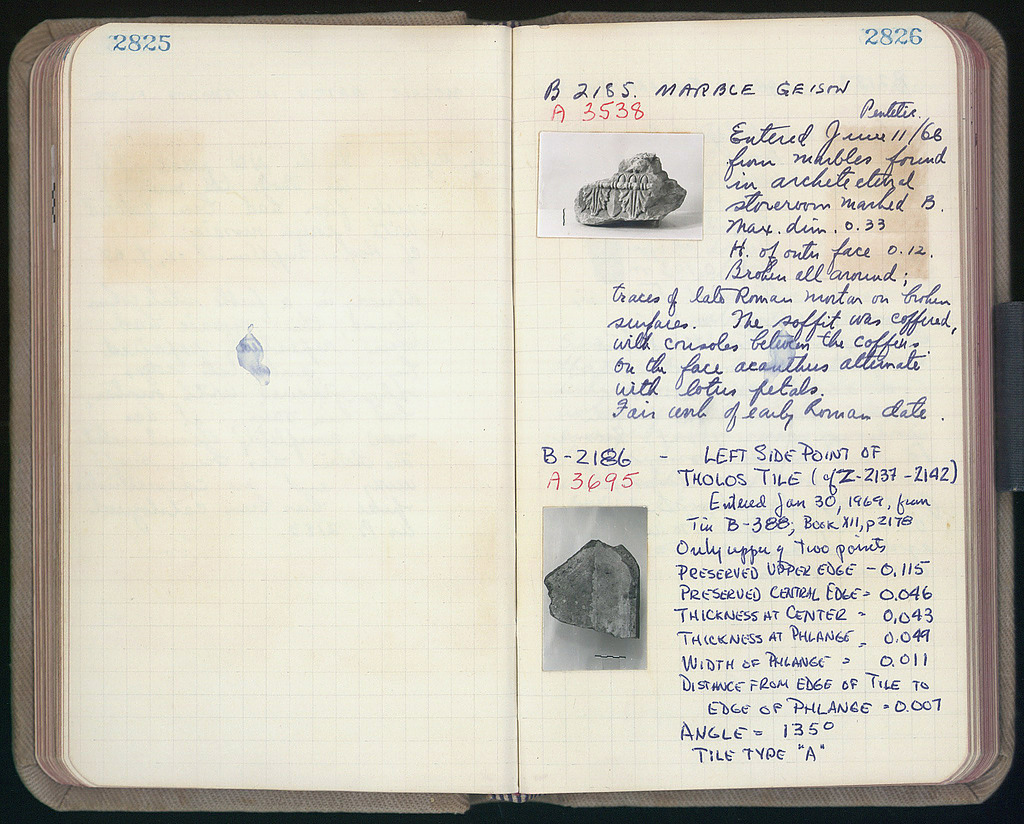 2825
2826
B 2185. MARBLE GEISON
A 3538
Pentelic.
Entered June 11/68
from marbles found
in architectural
storeroom marked B.
Max. dim. 0.33
H. of outer face 0.12.
Broken all around;
traces of late Roman mortar on broken
surfaces. The soffit was coffered,
with consoles between the coffers.
On the face acanthus alternate
with lotus petals.
Fair work of early Roman date.
B-2186 - LEFT SIDE POINT OF
A 3695
THOLOS TILE (of Z-2137-2142)
Entered Jan 30, 1969, from
Tin B-388; BOOK XII, p 2178
Only upper of two points
PRESERVED UPPER EDGE - 0.115
PRESERVED CENTRAL EDGE = 0.046
THICKNESS AT CENTER = 0.043
THICKNESS AT PHLANGE = 0.049
WIDTH OF PHLANGE = 0.011
DISTANCE FROM EDGE OF TILE TO
EDGE OF PHLANGE = 0.007
ANGLE = 135°
TILE TYPE "A"